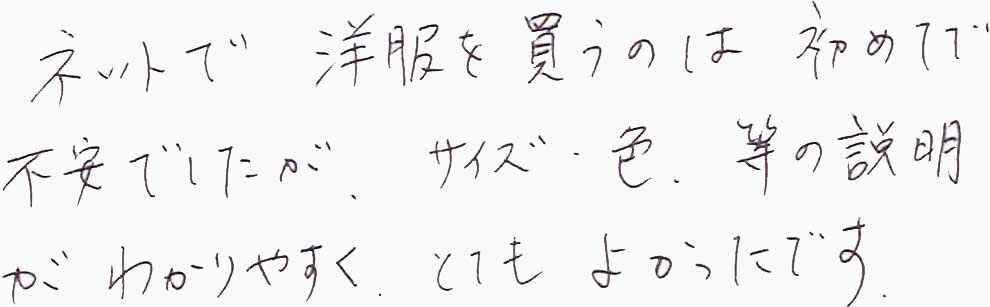 ネットで 洋服を買うのは 初めてで
不安でしたが、サイズ・色、等の説明
がわかりやすく、とても よかったです。